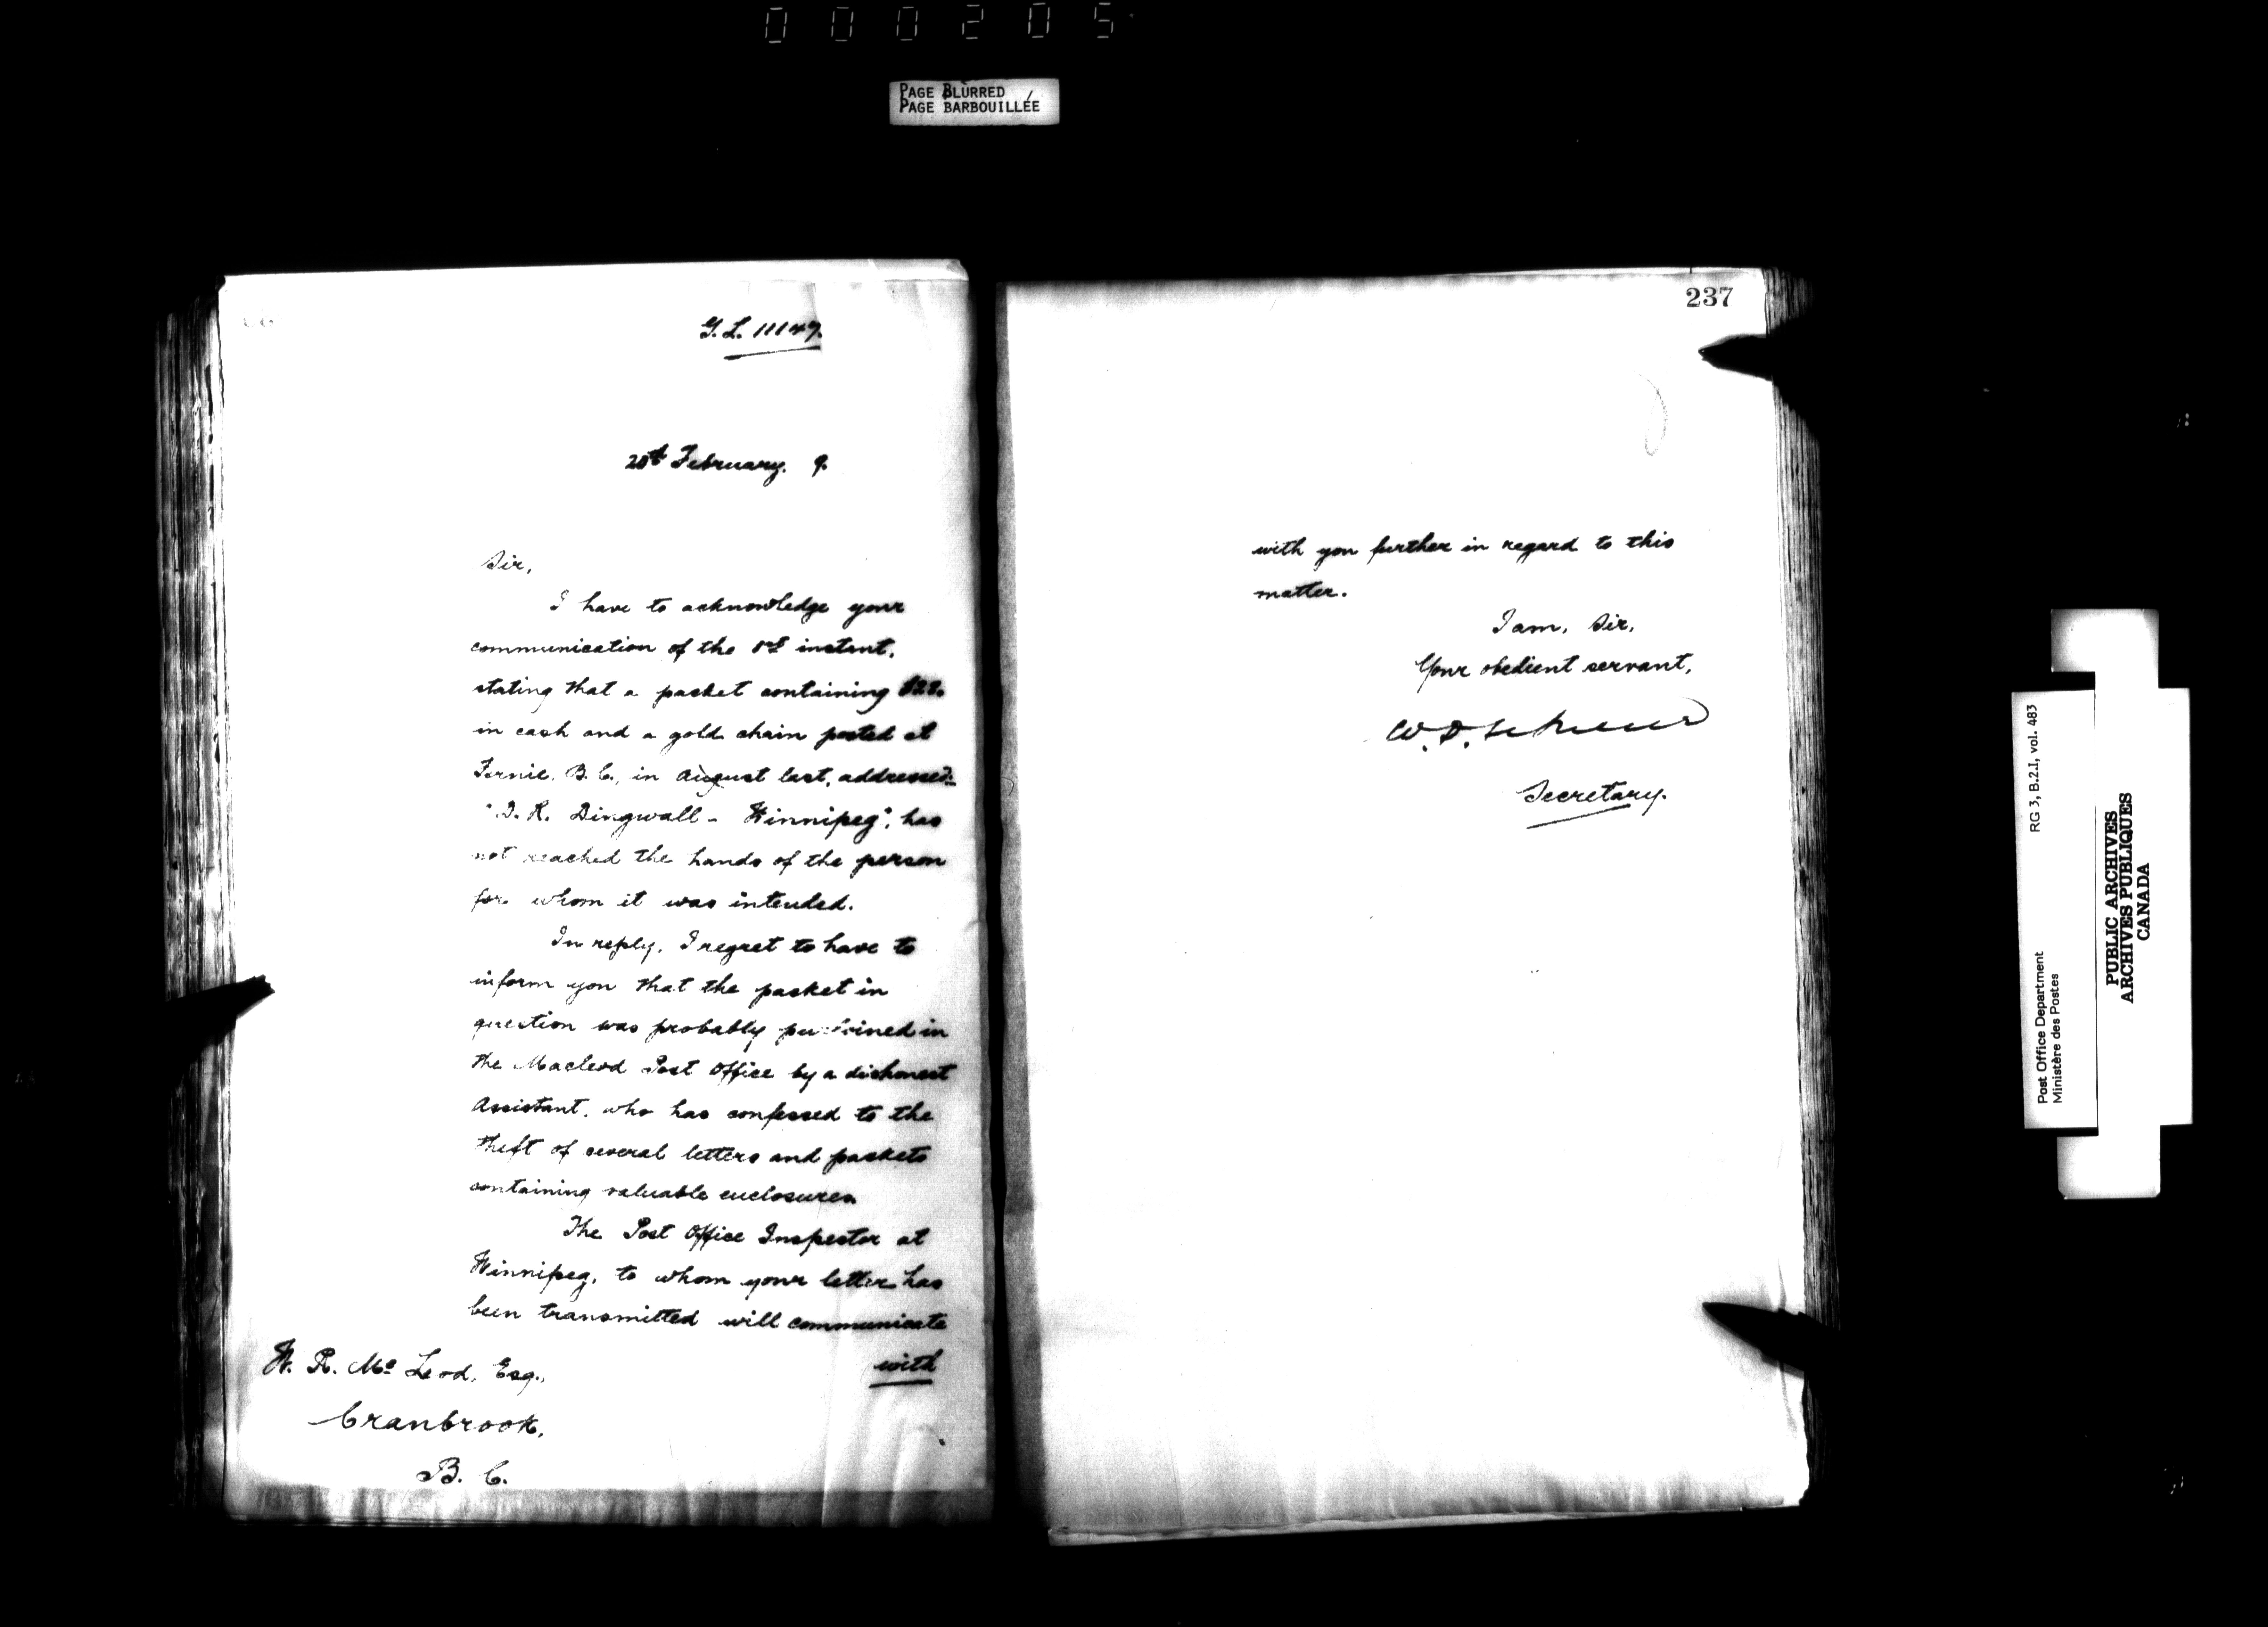 000205
PAGE BLURRED
PAGE BARBOUILLÉE
G. L. 11147.
20th February. 9.
Sir,
I have to acknowledge your
communication of the 1st instant,
stating that a packet containing
in cash and a gold chain posted at
Fernie, B. C., in August last, addressed:
"D. R. Dingwall - Winnipeg", has
not reached the hands of the person
for whom it was intended.
In reply, I regret to have to
inform you that the packet in
question was probably purloined in
the Macleod Post Office by a dishonest
Assistant, who has confessed to the
theft of several letters and packets
containing valuable enclosures.
The Post Office Inspector at
Winnipeg, to whom your letter has
been transmitted will communicate
with
W. R. Mc Leod, Esq.,
Cranbrook,
B. C.
237
with you further in regard to this
matter.
I am, Sir,
Your obedient servant,
Secretary.
RG 3, B.2.I, vol. 483
Post Office Department
Ministère des Postes
PUBLIC ARCHIVES
ARCHIVES PUBLIQUES
CANADA